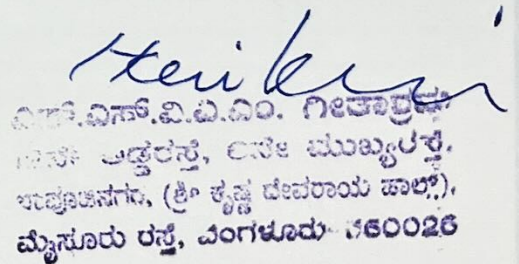 ಎಸ್.ಎಸ್.ವಿ.ಏ.ಎಂ. ಗೀತಾಶ್ರಮ
ಅಡ್ಡರಸ್ತೆ, ೮ನೇ ಮುಖ್ಯರಸ್ತೆ,
ಬಾಪೂಜಿನಗರ, (ಶ್ರೀ ಕೃಷ್ಣ ದೇವರಾಯ ಹಾಲ್),
ಮೈಸೂರು ರಸ್ತೆ, ಬೆಂಗಳೂರು 560026